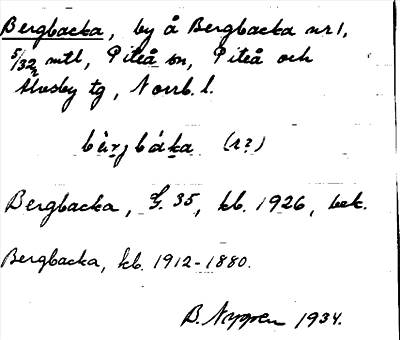 Bergbacka, by å Bergbacka nr 1,
5/32 mtl, Piteå sn, Piteå och
Älvsby tg, Norrb. l.
bärgbáka (r2)
Bergbacka, G. 35, kb. 1926, bek.
Bergbacka, kb. 1912-1880.
B. Nygren 1934.